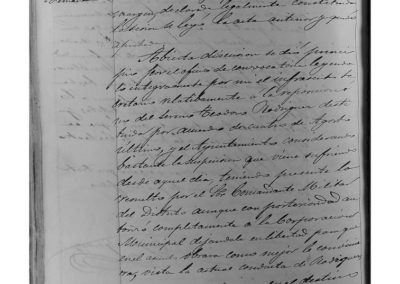 sangui, declarada legalmente constituida
la sesion se leyó el acta anterior y quedó
aprobada.
Abierta discusion se dió princi-
pio por el oficio de convocatoria leyendo
lo integramente por mi el infrascrito Se-
cretario relativamente á la reposicion
del Sereno Teodoro Rodriguez desti-
tuido por acuerdo de cuatro de Agosto
último, y el Ayuntamiento considerando
bastante la suspension que vino sufriendo
desde aquel dia, teniendo presente lo
resuelto por el Sr. Comandante Militar
del Distrito aunque con posterioridad au-
torizó completamente a la Corporacion
Municipal dejandole en libertad para que
en el asunto obrara como mejor le convinie-
ra, vista la actual conducta de Rodriguez